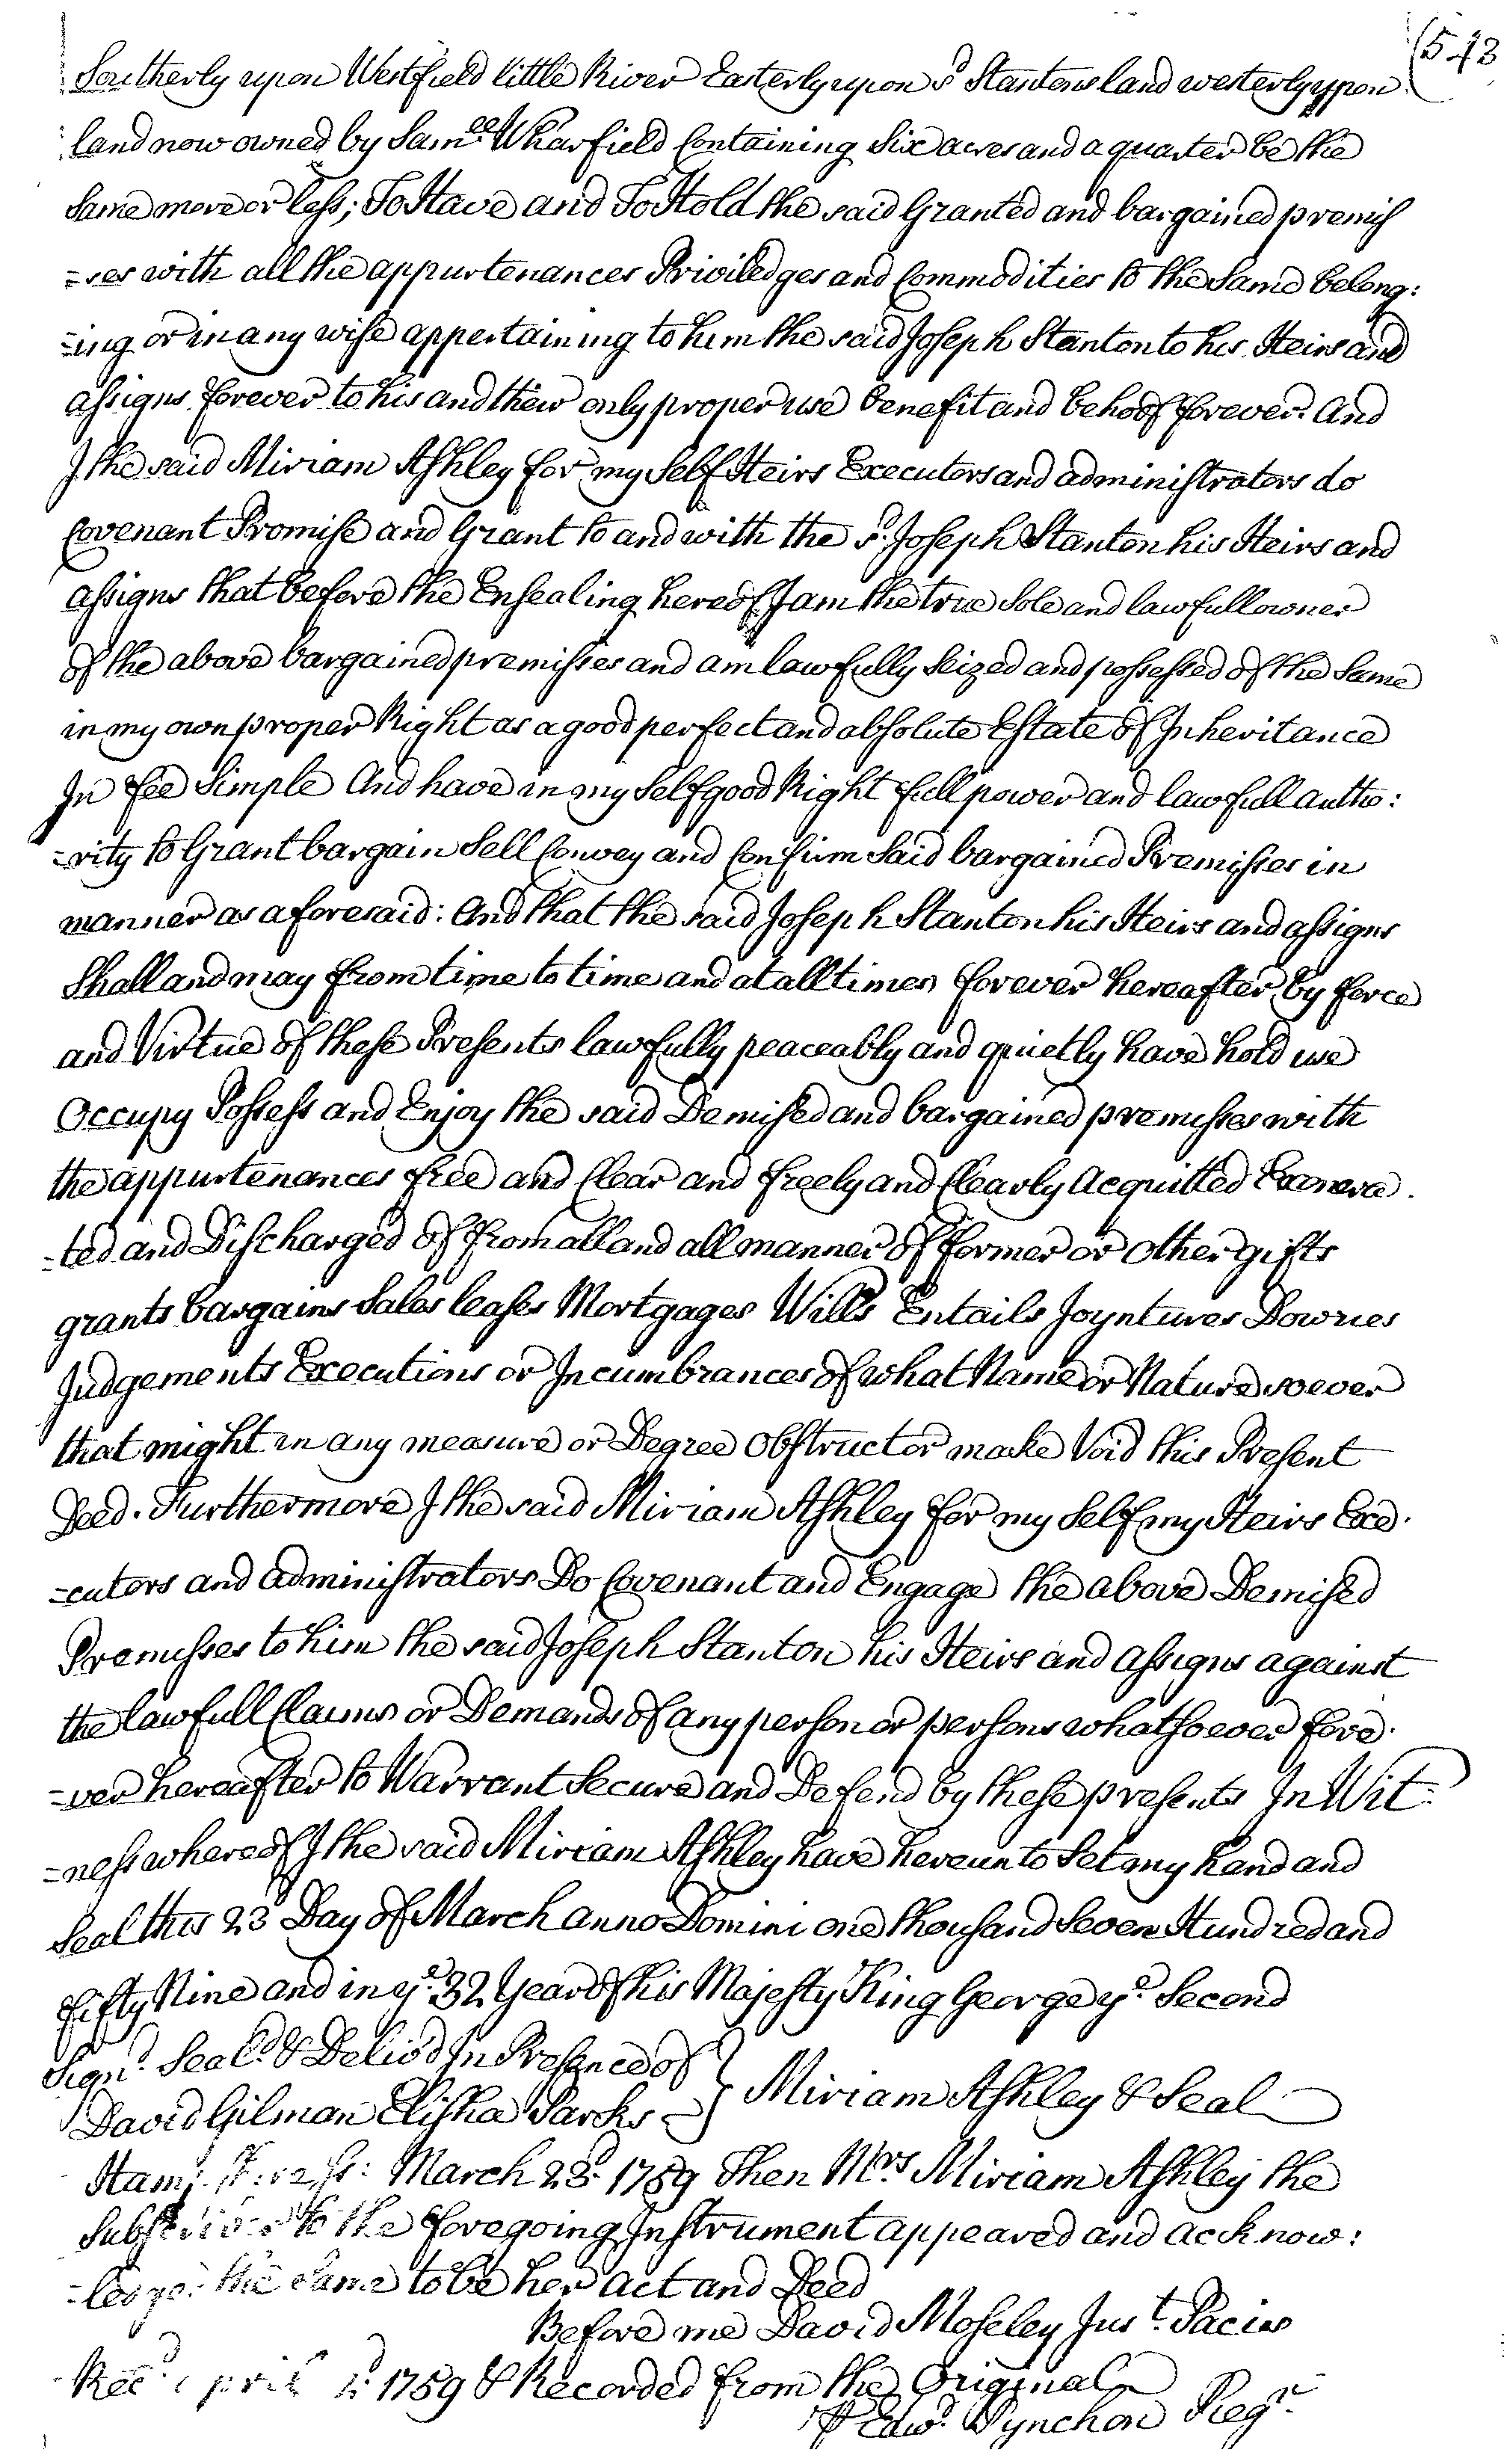 (543
Southerly upon Westfield little River Easterly upon sd Stantons land westerly upon
land now owned by Samll Wharfield Containing Six acres and a quarter be the
Same more or less; To Have and To Hold the said Granted and bargained premis
=ses with all the appurtenances Priviledges and Commodities to the Same belong:
=ing or in any wise appertaining to him the said Joseph Stanton to his Heirs and
assigns forever to his and their only proper use benefit and behoof forever. And
I the said Miriam Ashley for my Self Heirs Executors and administrators do
Covenant Promise and Grant to and with the sd. Joseph Stanton his Heirs and
assigns that before the Ensealing hereof I am the true Sole and lawfull owner
of the above bargained premisses and am lawfully Seized and possessed of the Same
in my own proper Right as a good perfect and absolute Estate of Inheritance
In Fee Simple And have in my Self good Right full power and lawfull autho:
=rity to Grant bargain Sell Convey and Confirm Said bargained Premisses in
manner as aforesaid: And that the said Joseph Stanton his Heirs and assigns
Shall and may from time to time and at all times forever hereafter by force
and Virtue of these Presents lawfully peaceably and quietly have hold use
Occupy Possess and Enjoy the said Demised and bargained premisses with
the appurtenances free and Clear and freely and Clearly Acquitted Exonera
-ted and Discharged of from all and all manner of former or other gifts
grants bargains Sales leases Mortgages Wills Entails Joyntures Dowries
Judgements Executions or Incumbrances of what Name or Nature soever
that might in any measure or Degree Obstruct or make Void this Present
Deed. Furthermore I the said Miriam Ashley for my Self my Heirs Exe.
=cutors and administrators Do Covenant and Engage the above Demised
Premisses to him the said Joseph Stanton his Heirs and Assigns against
the lawfull Claims or Demands of any person or persons whatsoever fore.
=ver hereafter to Warrant Secure and Defend by these presents In Wit:
=ness whereof I the said Miriam Ashley have hereunto Set my hand and
Seal this 23d Day of March anno Domini one thousand Seven Hundred and
fifty Nine and in ye. 32 Year of his Majesty King George ye. Second
Signd. Seald. & Delivd In Presence of
David Gilman Elisha Parks } Miriam Ashley & Seal
Hamp. March 23d. 1759 Then Mrs Miriam Ashley the
Subscriber to the foregoing Instrument appeared and acknow:
=ledged the Same to be her act and Deed
Before me David Moseley Just. Pacis
Recd April 1759 & Recorded from the Original
P Edwd. Pynchon Regr.